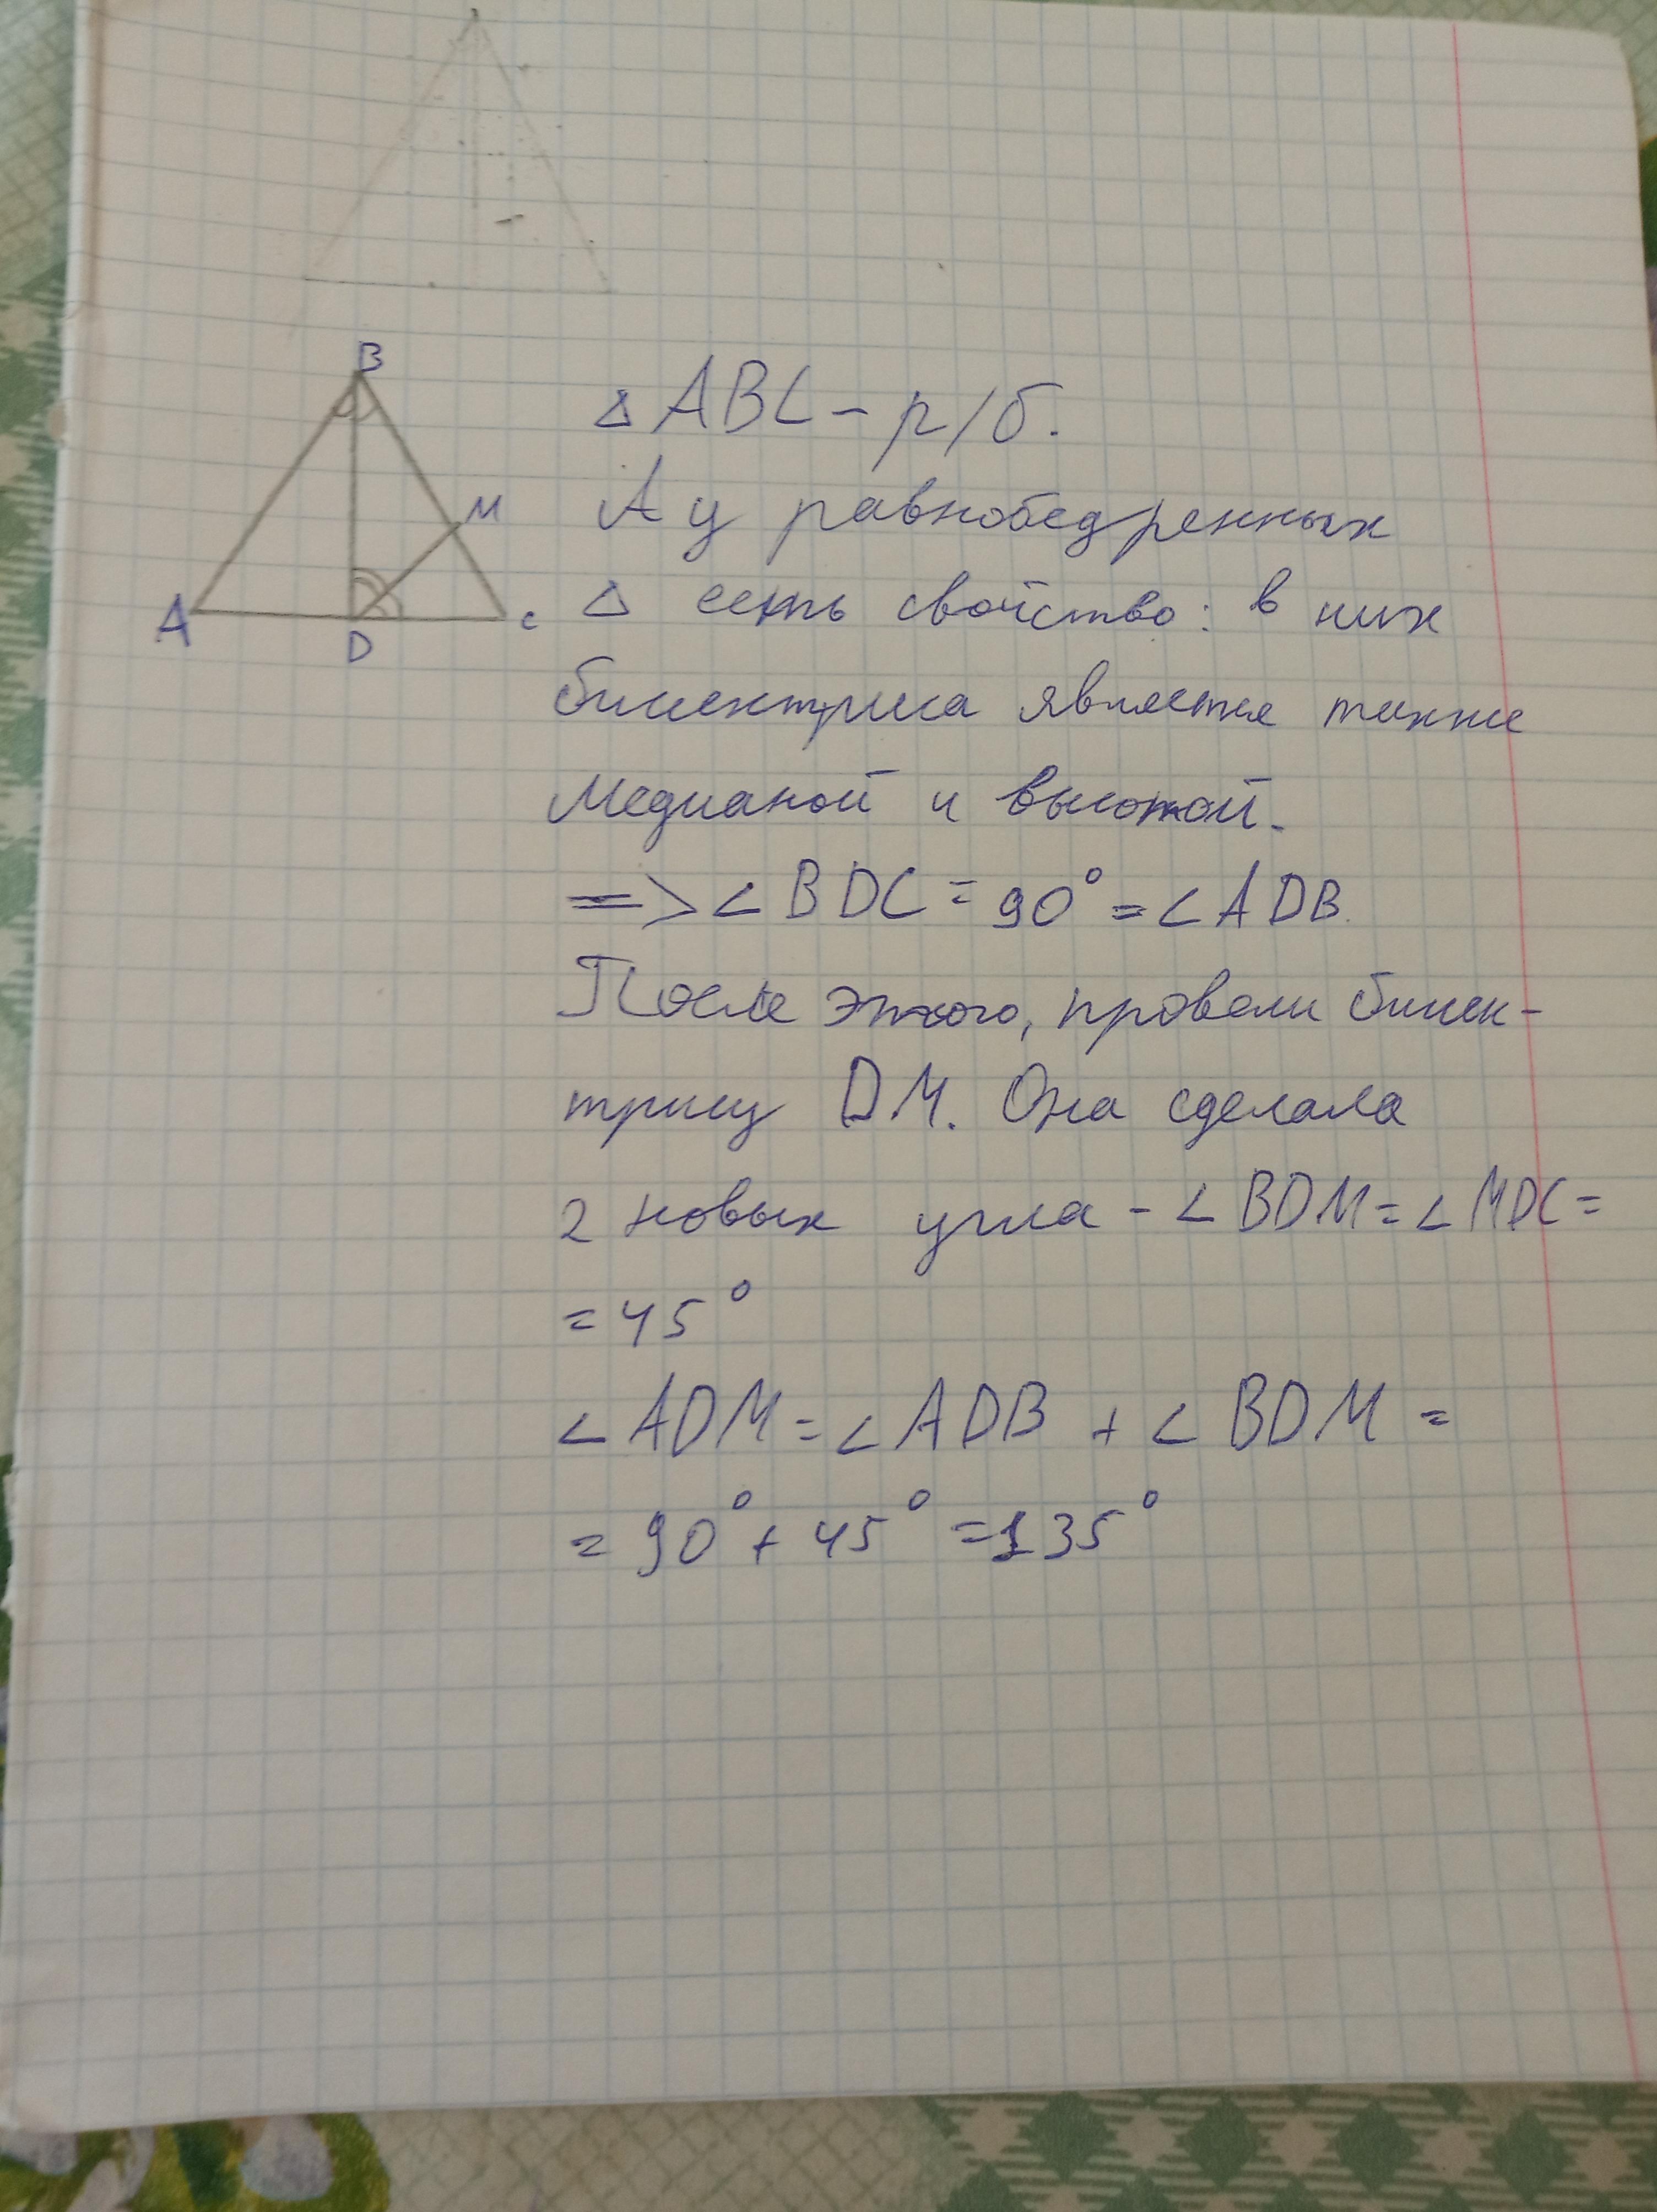 B
M
A
D
c
△ABC – р/б.
А у равнобедренных
△ есть свойство: в них
биссектриса является также
медианой и высотой.
=> ∠BDC = 90° = ∠ADB.
После этого, провели биссек-
трису DM. Она сделала
2 новых угла - ∠BDM = ∠MDC =
= 45°
∠ADM = ∠ADB + ∠BDM =
= 90° + 45° = 135°